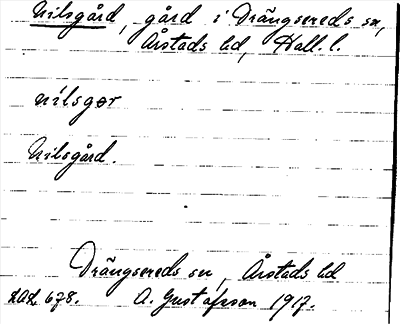 Nilsgård, gård i Drängsereds sn,
Årstads hd, Hall. l.
nilsgor
Nilsgård.
Drängsereds sn, Årstads hd
LAL 678. A. Gustafsson 1917.